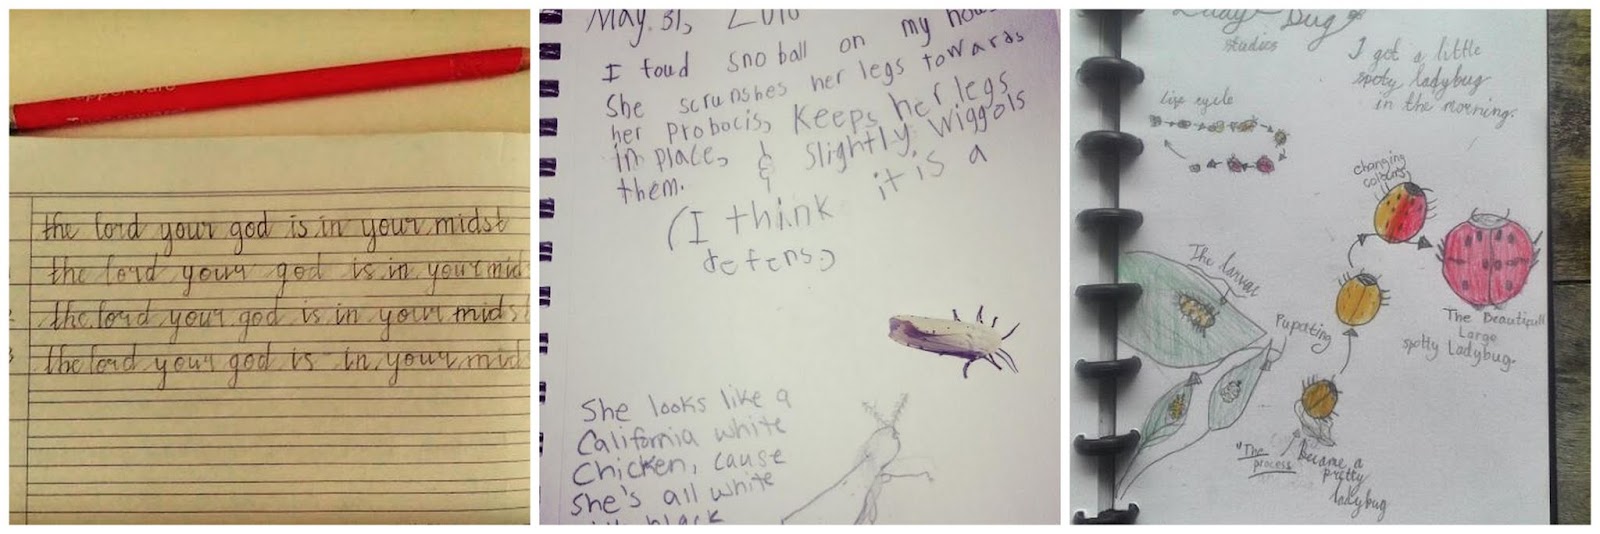 the lord your god is in your midst
the lord your god is in your mids
the lord your god is in your midst
the lord your god is in your mid
May. 31,
I foud sno ball on my hous
She scrunshes her legs towards
her probocis, keeps her legs
in place, & slightly wiggols
them.
(I think it is a
defens.)
She looks like a
California white
Chicken, cause
She's all white
black
Lady Bug
studies
I got a little
spoty ladybug
in the morning.
Live cycle
changing
colours
The larvae
Pupating
The Beautifull
Large
spotty Ladybug.
"The
process
Became a
pretty
ladybug